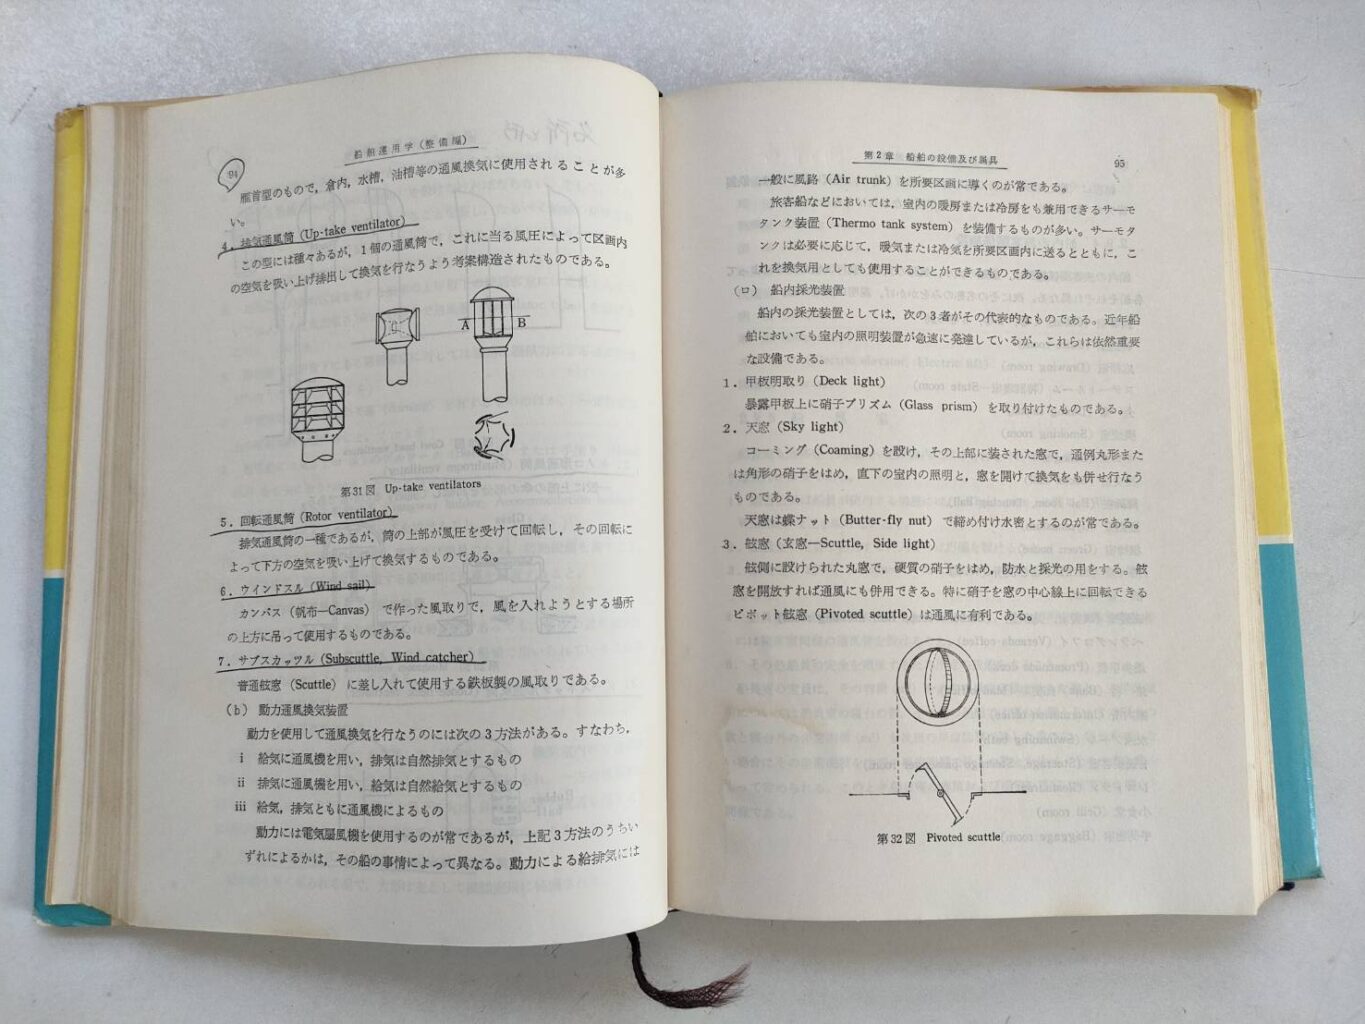 94
船舶運用学(整備編)
雁首型のもので，倉内，水槽，油槽等の通風換気に使用されることが多
い。
4．排気通風筒（Up-take ventilator）
この型には種々あるが，1個の通風筒で，これに当る風圧によって区画内
の空気を吸い上げ排出して換気を行なうよう考案構造されたものである。
A B
第31図 Up-take ventilators
5．回転通風筒（Rotor ventilator）
排気通風筒の一種であるが，筒の上部が風圧を受けて回転し，その回転に
よって下方の空気を吸い上げて換気するものである。
6．ウインドスル（Wind sail）
カンバス（帆布—Canvas）で作った風取りで，風を入れようとする場所
の上方に吊って使用するものである。
7．サブスカッツル（Subscuttle, Wind catcher）
普通舷窓（Scuttle）に差し入れて使用する鉄板製の風取りである。
（b） 動力通風換気装置
動力を使用して通風換気を行なうのには次の3方法がある。すなわち，
i 給気に通風機を用い，排気は自然排気とするもの
ii 排気に通風機を用い，給気は自然給気とするもの
iii 給気，排気ともに通風機によるもの
動力には電気扇風機を使用するのが常であるが，上記3方法のうちい
ずれによるかは，その船の事情によって異なる。動力による給排気には
第2章 船舶の設備及び属具
95
一般に風路（Air trunk）を所要区画に導くのが常である。
旅客船などにおいては，室内の暖房または冷房をも兼用できるサーモ
タンク装置（Thermo tank system）を装備するものが多い。サーモタ
ンクは必要に応じて，暖気または冷気を所要区画内に送るとともに，こ
れを換気用としても使用することができるものである。
（ロ） 船内採光装置
船内の採光装置としては，次の3者がその代表的なものである。近年船
舶においても室内の照明装置が急速に発達しているが，これらは依然重要
な設備である。
1．甲板明取り（Deck light）
暴露甲板上に硝子プリズム（Glass prism）を取り付けたものである。
2．天窓（Sky light）
コーミング（Coaming）を設け，その上部に装された窓で，通例丸形また
は角形の硝子をはめ，直下の室内の照明と，窓を開けて換気をも併せ行なう
ものである。
天窓は蝶ナット（Butter-fly nut）で締め付け水密とするのが常である。
3．舷窓（玄窓—Scuttle, Side light）
舷側に設けられた丸窓で，硬質の硝子をはめ，防水と採光の用をする。舷
窓を開放すれば通風にも併用できる。特に硝子を窓の中心線上に回転できる
ピボット舷窓（Pivoted scuttle）は通風に有利である。
第32図 Pivoted scuttle